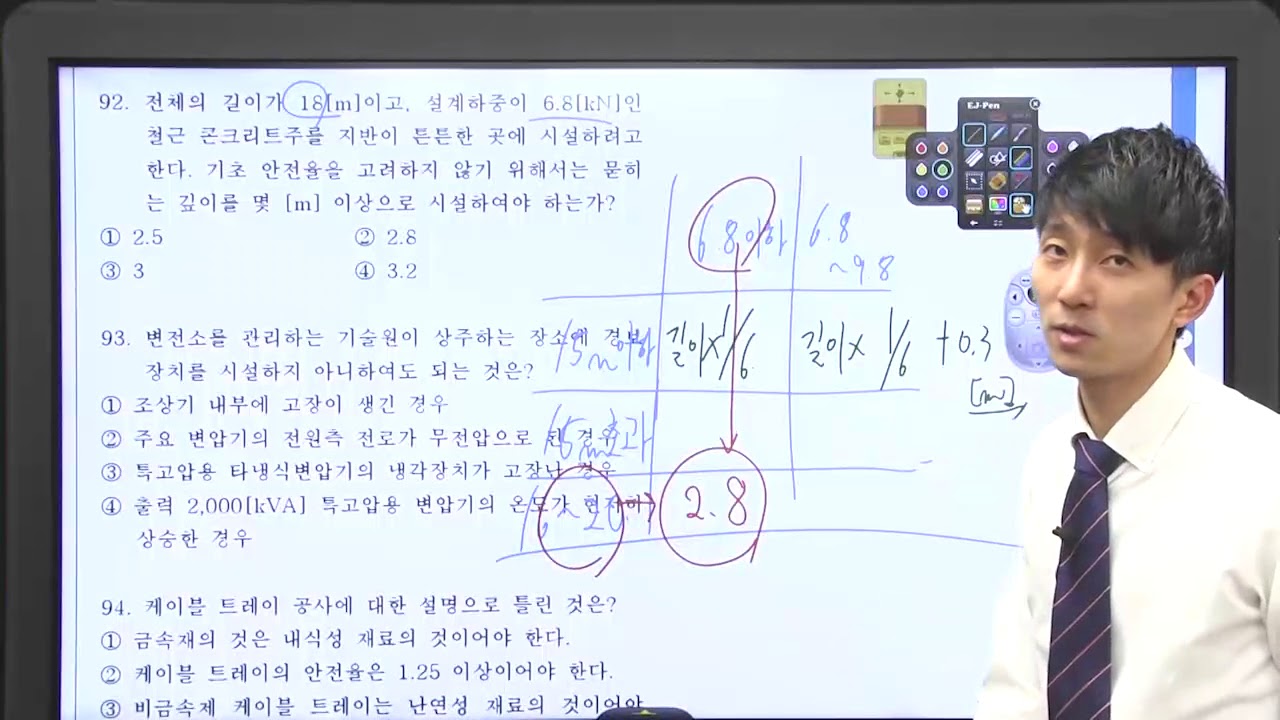 92. 전체의 길이가 18[m]이고, 설계하중이 6.8[kN]인
철근 콘크리트주를 지반이 튼튼한 곳에 시설하려고
한다. 기초 안전율을 고려하지 않기 위해서는 묻히
는 깊이를 몇 [m] 이상으로 시설하여야 하는가?
① 2.5 ② 2.8
③ 3 ④ 3.2
93. 변전소를 관리하는 기술원이 상주하는 장소에 경보
장치를 시설하지 아니하여도 되는 것은?
① 조상기 내부에 고장이 생긴 경우
② 주요 변압기의 전원측 전로가 무전압으로 된 경우
③ 특고압용 타냉식변압기의 냉각장치가 고장난 경우
④ 출력 2,000[kVA] 특고압용 변압기의 온도가 현저히
상승한 경우
94. 케이블 트레이 공사에 대한 설명으로 틀린 것은?
① 금속재의 것은 내식성 재료의 것이어야 한다.
② 케이블 트레이의 안전율은 1.25 이상이어야 한다.
③ 비금속제 케이블 트레이는 난연성 재료의 것이어야
6.8이하 6.8
~9.8
15m이하 길이×1/6 길이× 1/6 +0.3
[m]
15m초과
~20 2.8
EJ-Pen